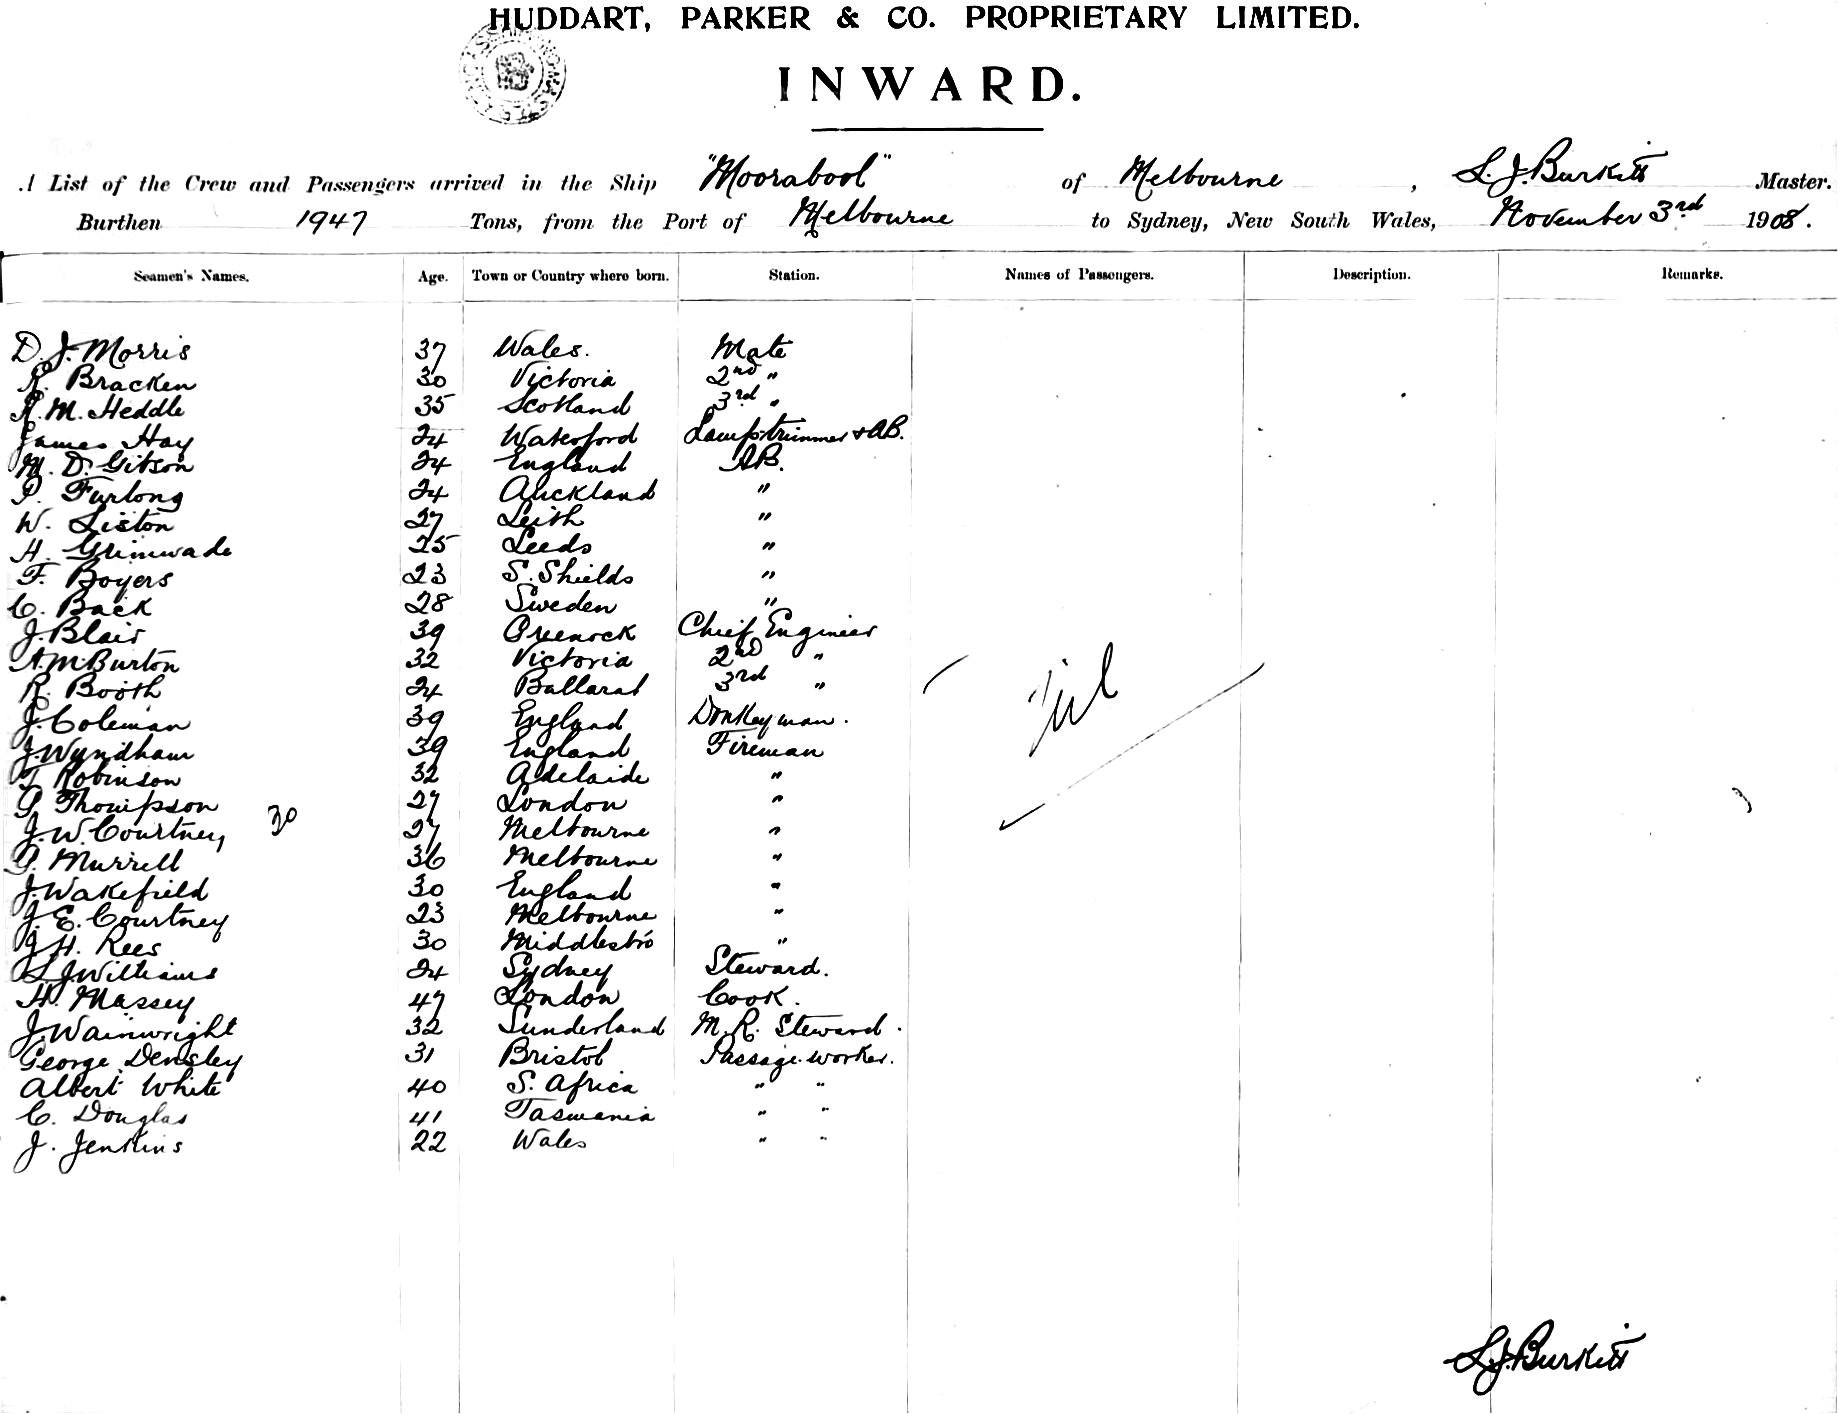 HUDDART, PARKER & CO. PROPRIETARY LIMITED.
INWARD.
A List of the Crew and Passengers arrived in the Ship "Moorabool" of Melbourne, L. J. Burkitt Master.
Burthen 1947 Tons, from the Port of Melbourne to Sydney, New South Wales, November 3rd 1908.
Seamen's Names. Age. Town or Country where born. Station. Names of Passengers. Description. Remarks.
D. J. Morris 37 Wales. Mate
R. Bracken 30 Victoria 2nd "
R. M. Heddle 35 Scotland 3rd "
James Hay 24 Waterford Lamptrimmer & AB.
M. D. Gibson 24 England AB.
P. Furlong 24 Auckland "
W. Liston 27 Leith "
H. Grimwade 25 Leeds "
F. Boyers 23 S. Shields "
C. Back 28 Sweden "
J. Blair 39 Greenock Chief Engineer
A. M Burton 32 Victoria 2nd "
R. Booth 24 Ballarat 3rd "
J. Coleman 39 England Donkeyman.
J. Wyndham 39 England Fireman
T Robinson 32 Adelaide "
G Thompson 27 London "
30
J. W. Courtney 27 Melbourne "
G. Murrell 36 Melbourne "
J. Wakefield 30 England "
J. E. Courtney 23 Melbourne "
J H. Rees 30 Middlesbro "
L. J. Williams 24 Sydney Steward.
H. Massey 47 London Cook.
J. Wainwright 32 Sunderland M. R. Steward.
George Densley 31 Bristol Passage worker.
Albert White 40 S. Africa " "
C. Douglas 41 Tasmania " "
J. Jenkins 22 Wales " "
Nil
L. J. Burkitt